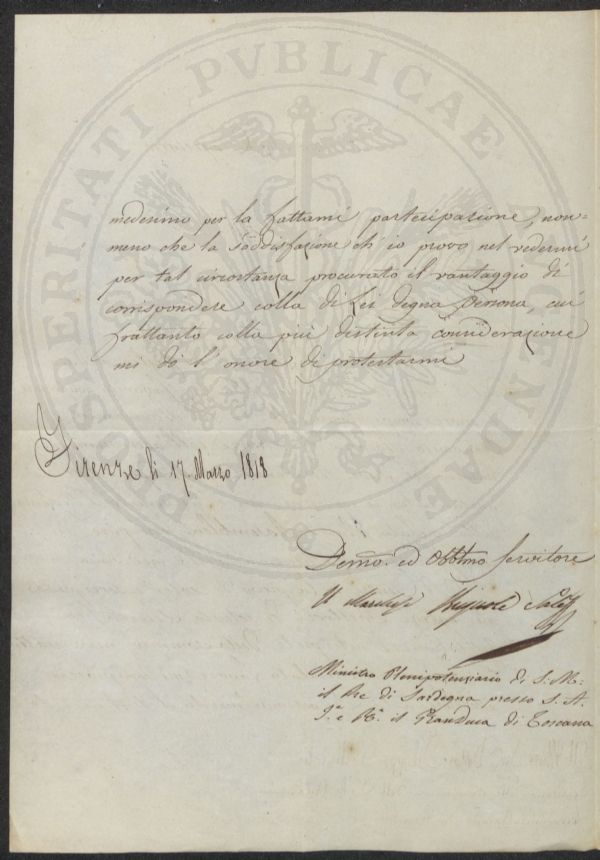 PROSPERITATI PVBLICAE AVGENDAE
medesimo per la fattami partecipazione, non=
meno che la soddisfazione ch'io provo nel vedermi
per tal circostanza procurato il vantaggio di
corrispondere colla di Lei degna Persona, cui
frattanto colla più distinta considerazione
mi dò l'onore di protestarmi
Firenze li 17. Marzo 1818
Devmo. ed Obblmo Servitore
Il Marchese Brignole Sale
Ministro Plenipotenziario di S. M:
il Re di Sardegna presso S. A.
I.e e R.e il GranDuca di Toscana